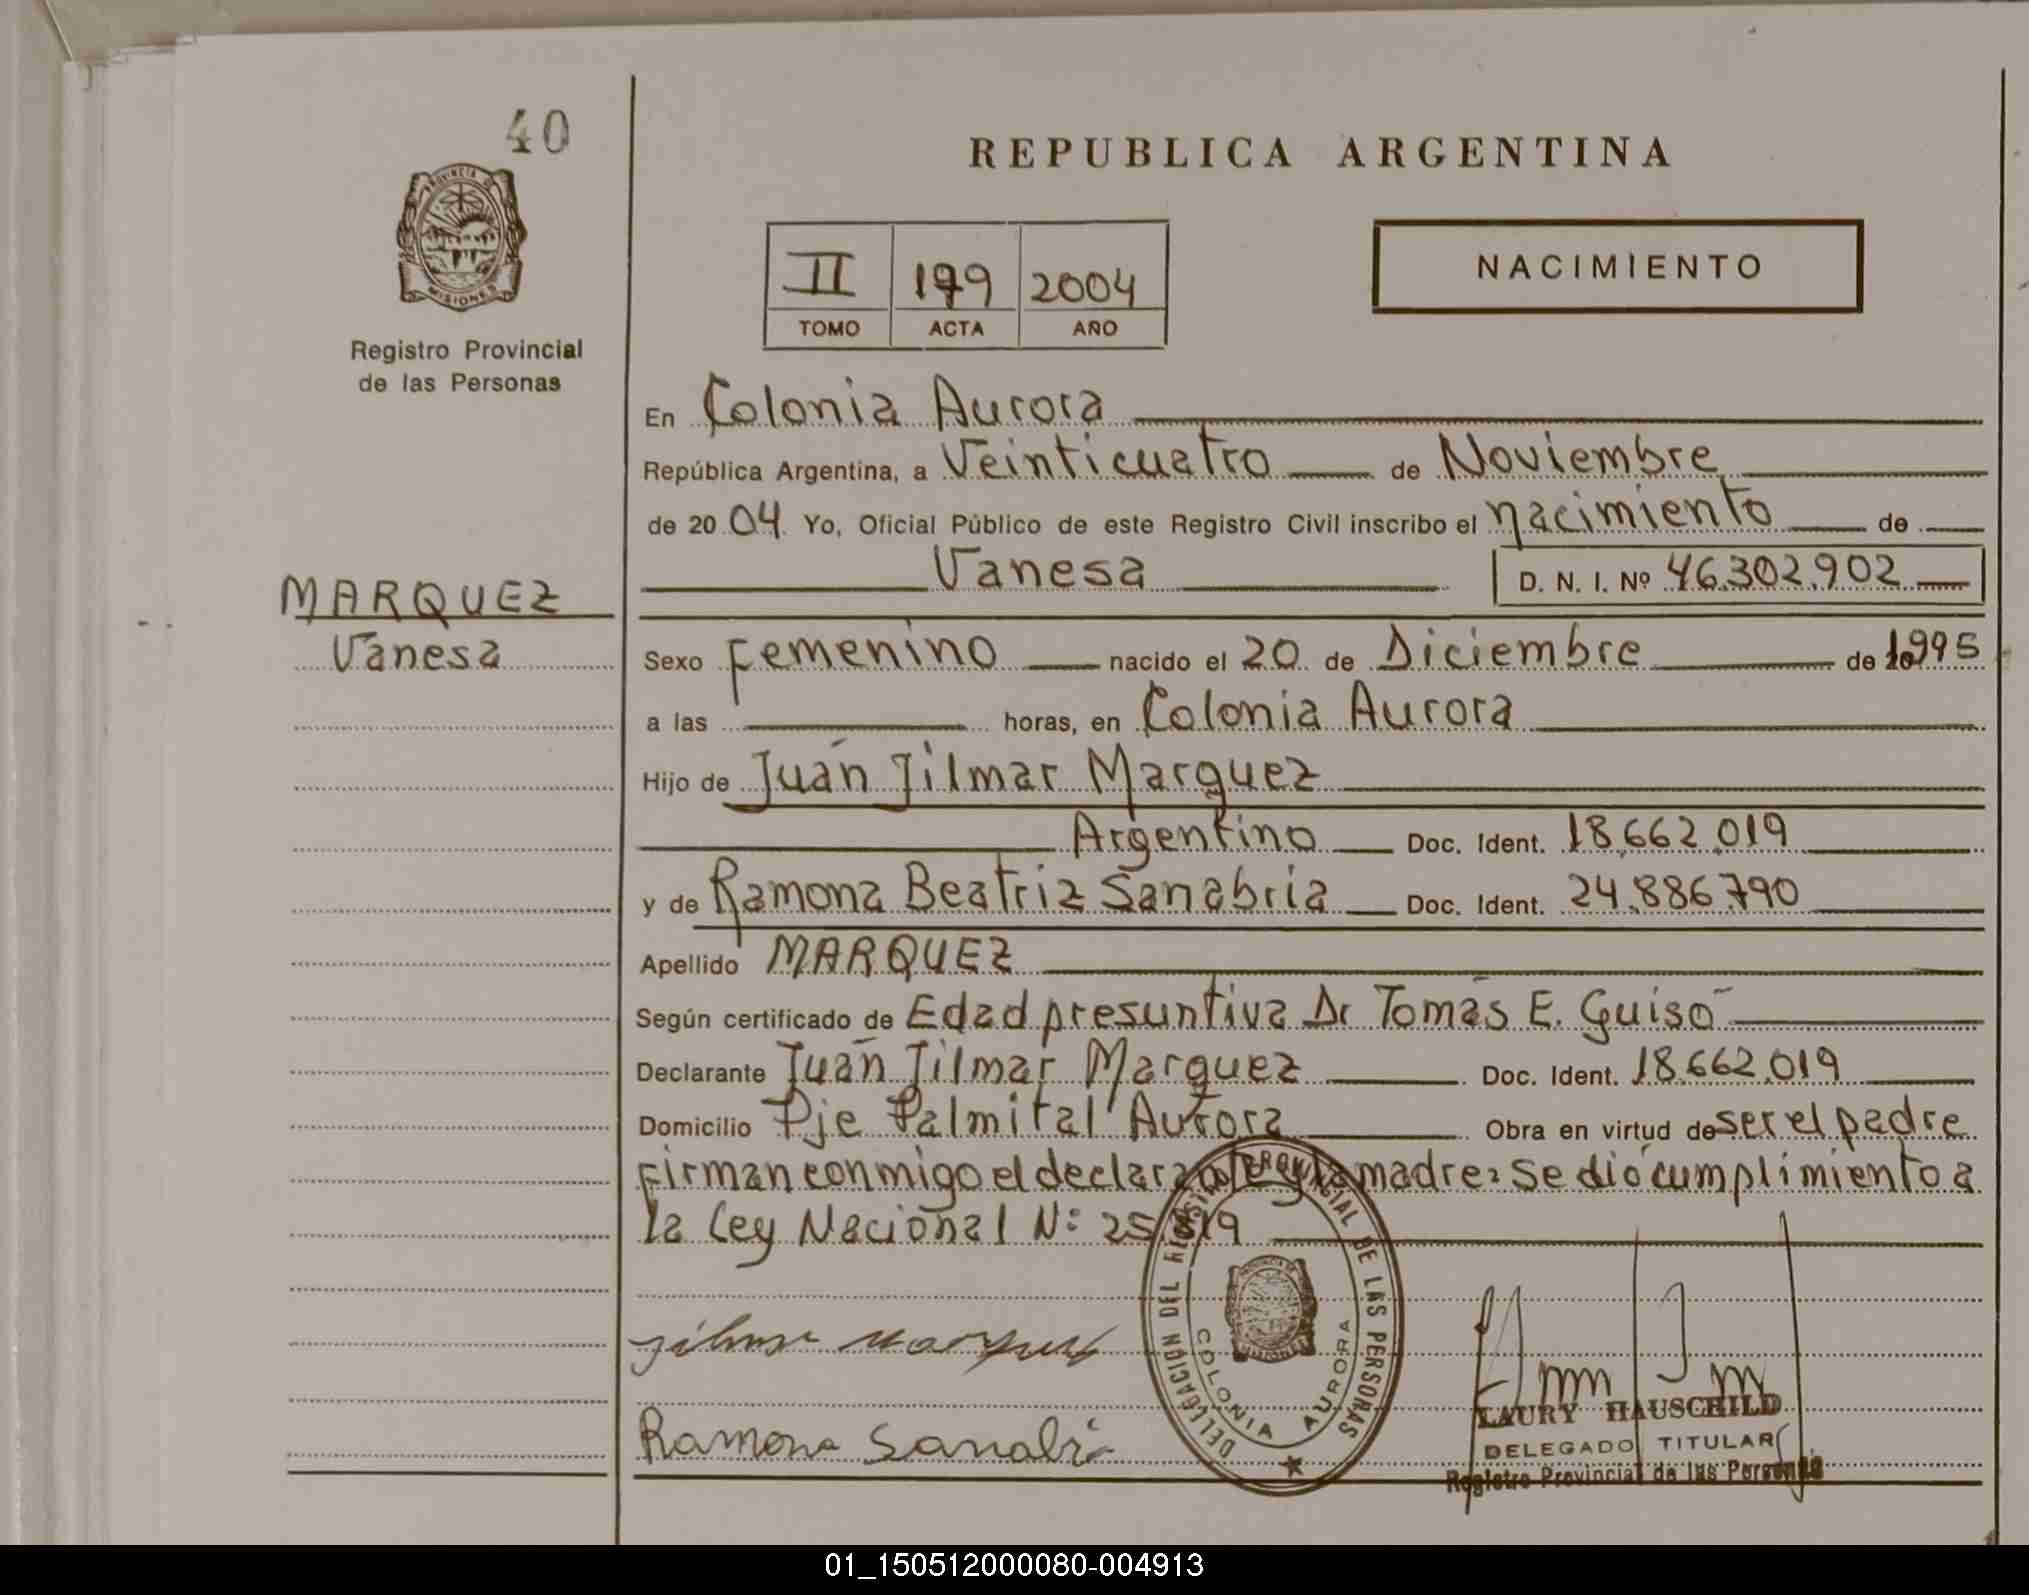 40
PROVINCIA DE
MISIONES
Registro Provincial
de las Personas
MARQUEZ
Vanesa
REPUBLICA ARGENTINA
II 199 2004
TOMO ACTA AÑO
NACIMIENTO
En Colonia Aurora
República Argentina, a Veinticuatro de Noviembre
de 20 04 Yo, Oficial Público de este Registro Civil inscribo el nacimiento de
Vanesa D. N. I. Nº 46.302.902
Sexo Femenino nacido el 20 de Diciembre de 1995
a las horas, en Colonia Aurora
Hijo de Juan Jilmar Marquez
Argentino Doc. Ident. 18.662.019
y de Ramona Beatriz Sanabria Doc. Ident. 24.886.790
Apellido MARQUEZ
Según certificado de Edad presuntiva Dr Tomás E. Guisó
Declarante Juan Jilmar Marquez Doc. Ident. 18.662.019
Domicilio Pje Palmital Aurora Obra en virtud de ser el padre
Firman conmigo el declarante y la madre: Se dió cumplimiento a
la Ley Nacional Nº 25.819
Jilmar Marquez
Ramona Sanabria
DELEGACION DEL REGISTRO PROVINCIAL DE LAS PERSONAS
COLONIA AURORA
LAURY HAUSCHILD
DELEGADO TITULAR
Registro Provincial de las Personas
01_150512000080-004913